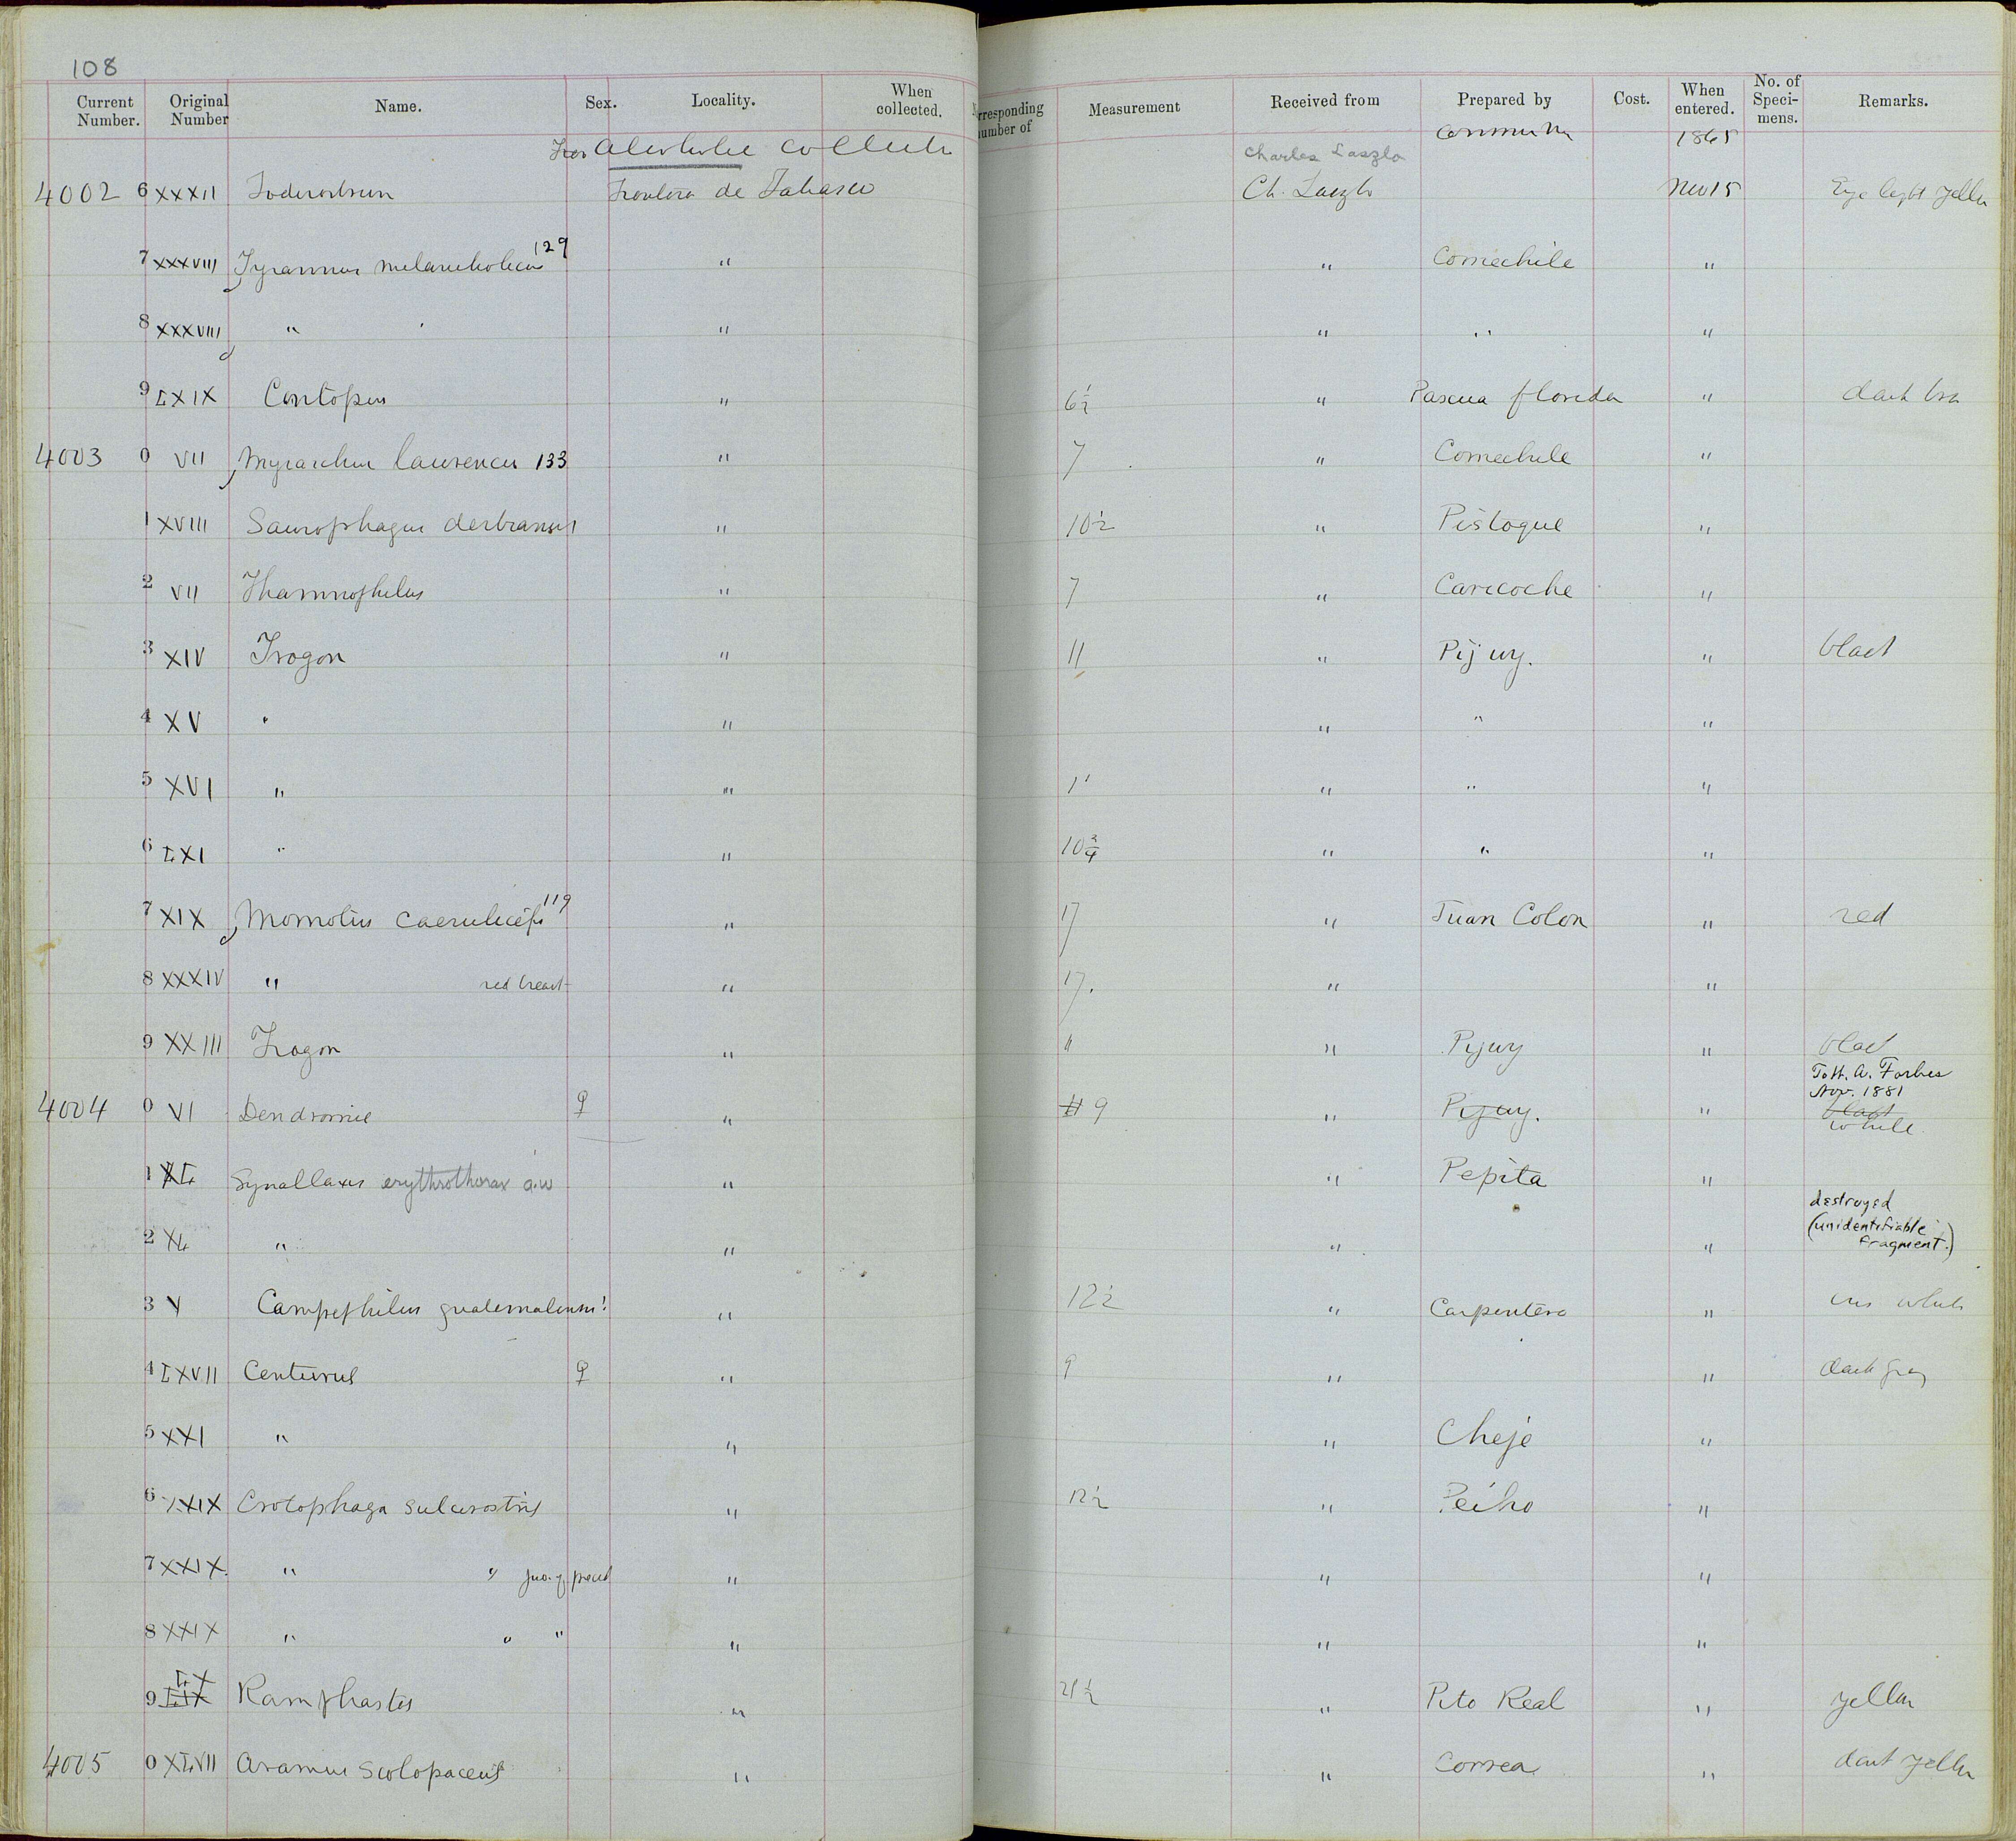 108
Current Number. Original Number Name. Sex. Locality. When collected. rresponding umber of Measurement Received from Prepared by Cost. When entered. No. of Speci- mens. Remarks.
Alcoholic Collectn 1865
Charles Laszlo
4002 6 XXXII Todirostrum Frontera de Tabasco Ch. Laszlo Nov 15 Eye light yellow
7 XXXVIII Tyrannus melancholicus 129 " " Comechile "
8 XXXVIII " " " " "
9 LXIX Contopus " 6½ " Pascua florida " dark brn
4003 0 VII Myiarchus lawrencei 133 " 7 " Comechile "
1 XVIII Saurophagus derbianus " 10½ " Pistoque "
2 VII Thamnophilus " 7 " Caricoche "
3 XIV Trogon " 11 " Pijuy. " black
4 XV " " " " "
5 XVI " " 11 " " "
6 LXI " " 10¾ " " "
7 XIX Momotus caeruliceps 119 " 17 " Juan Colon " red
8 XXXIV " red breast " 17. " "
9 XXIII Trogon " " " Pijuy " black
To H. A. Forbes
Nov. 1881
4004 0 VI Dendrornis ♀ " 11 9 " Pijuy. " black
white
1 XL Synallaxis erythrothorax a.w " " Pepita "
destroyed
2 XL " " " " (unidentifiable
fragment.)
3 V Campephilus guatemalensis! " 12½ " Carpintero " iris white
4 LXVII Centurus ♀ " 9 " " dark gray
5 XXI " " " Cheje "
6 XXIX Crotophaga sulcirostris " 12½ " Peiho "
7 XXIX. " " juv. of preced " " "
8 XXIX " " " " " "
LX
9 LIX Ramphastos " 21½ " Pito Real " yellow
4005 0 XLVII Aramus scolopaceus " " Correa " dark yellow